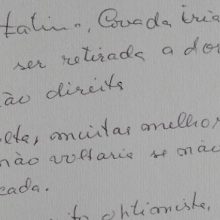 talino, Covada iria
ser retirada a dor
ão direita
olta, muitas melhor
não voltaria se não
cada.
to optimista,